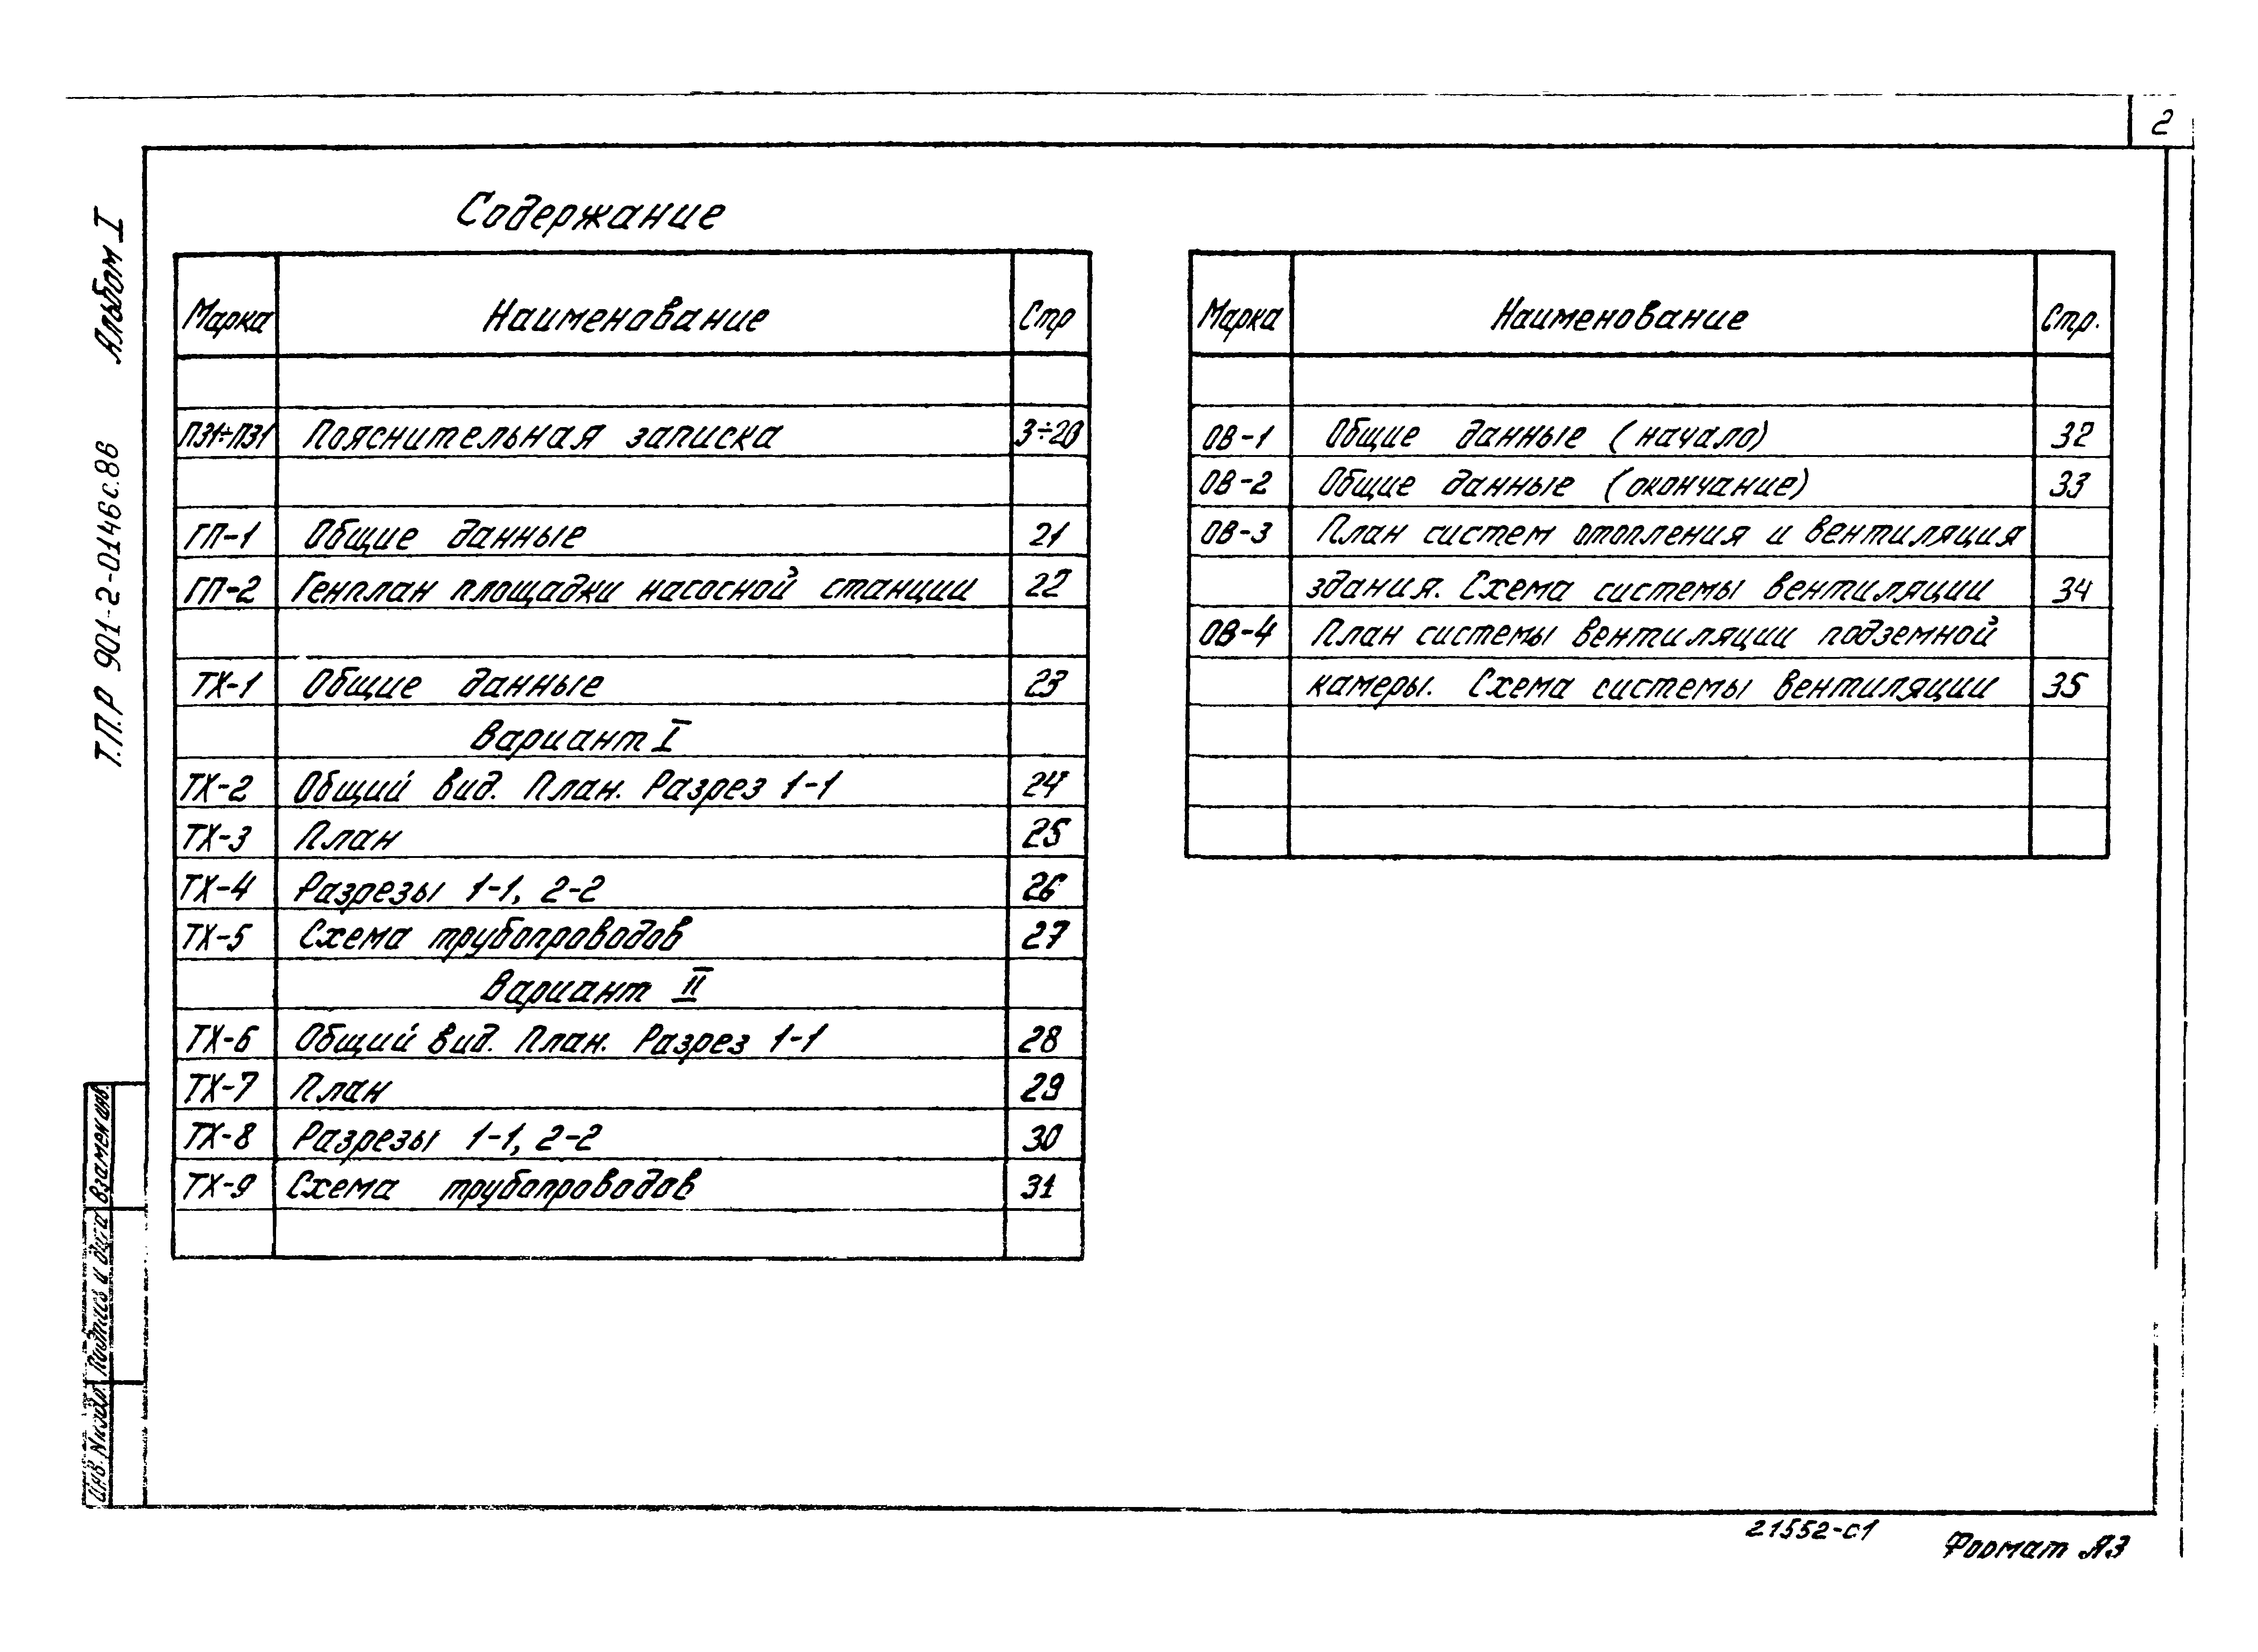 2
Альбом I
Т.П.Р 901-2-0146с.86
Содержание
Марка Наименование Стр
ПЗ1÷ПЗ1 Пояснительная записка 3÷20
ГП-1 Общие данные 21
ГП-2 Генплан площадки насосной станции 22
ТХ-1 Общие данные 23
Вариант I
ТХ-2 Общий вид. План. Разрез 1-1 24
ТХ-3 План 25
ТХ-4 Разрезы 1-1, 2-2 26
ТХ-5 Схема трубопроводов 27
Вариант II
ТХ-6 Общий вид. План. Разрез 1-1 28
ТХ-7 План 29
ТХ-8 Разрезы 1-1, 2-2 30
ТХ-9 Схема трубопроводов 31
Марка Наименование Стр.
ОВ-1 Общие данные (начало) 32
ОВ-2 Общие данные (окончание) 33
ОВ-3 План систем отопления и вентиляция
здания. Схема системы вентиляции 34
ОВ-4 План системы вентиляции подземной
камеры. Схема системы вентиляции 35
Взамен инв.
Подпись и дата
Инв. № подл.
21552-с1
Формат А3